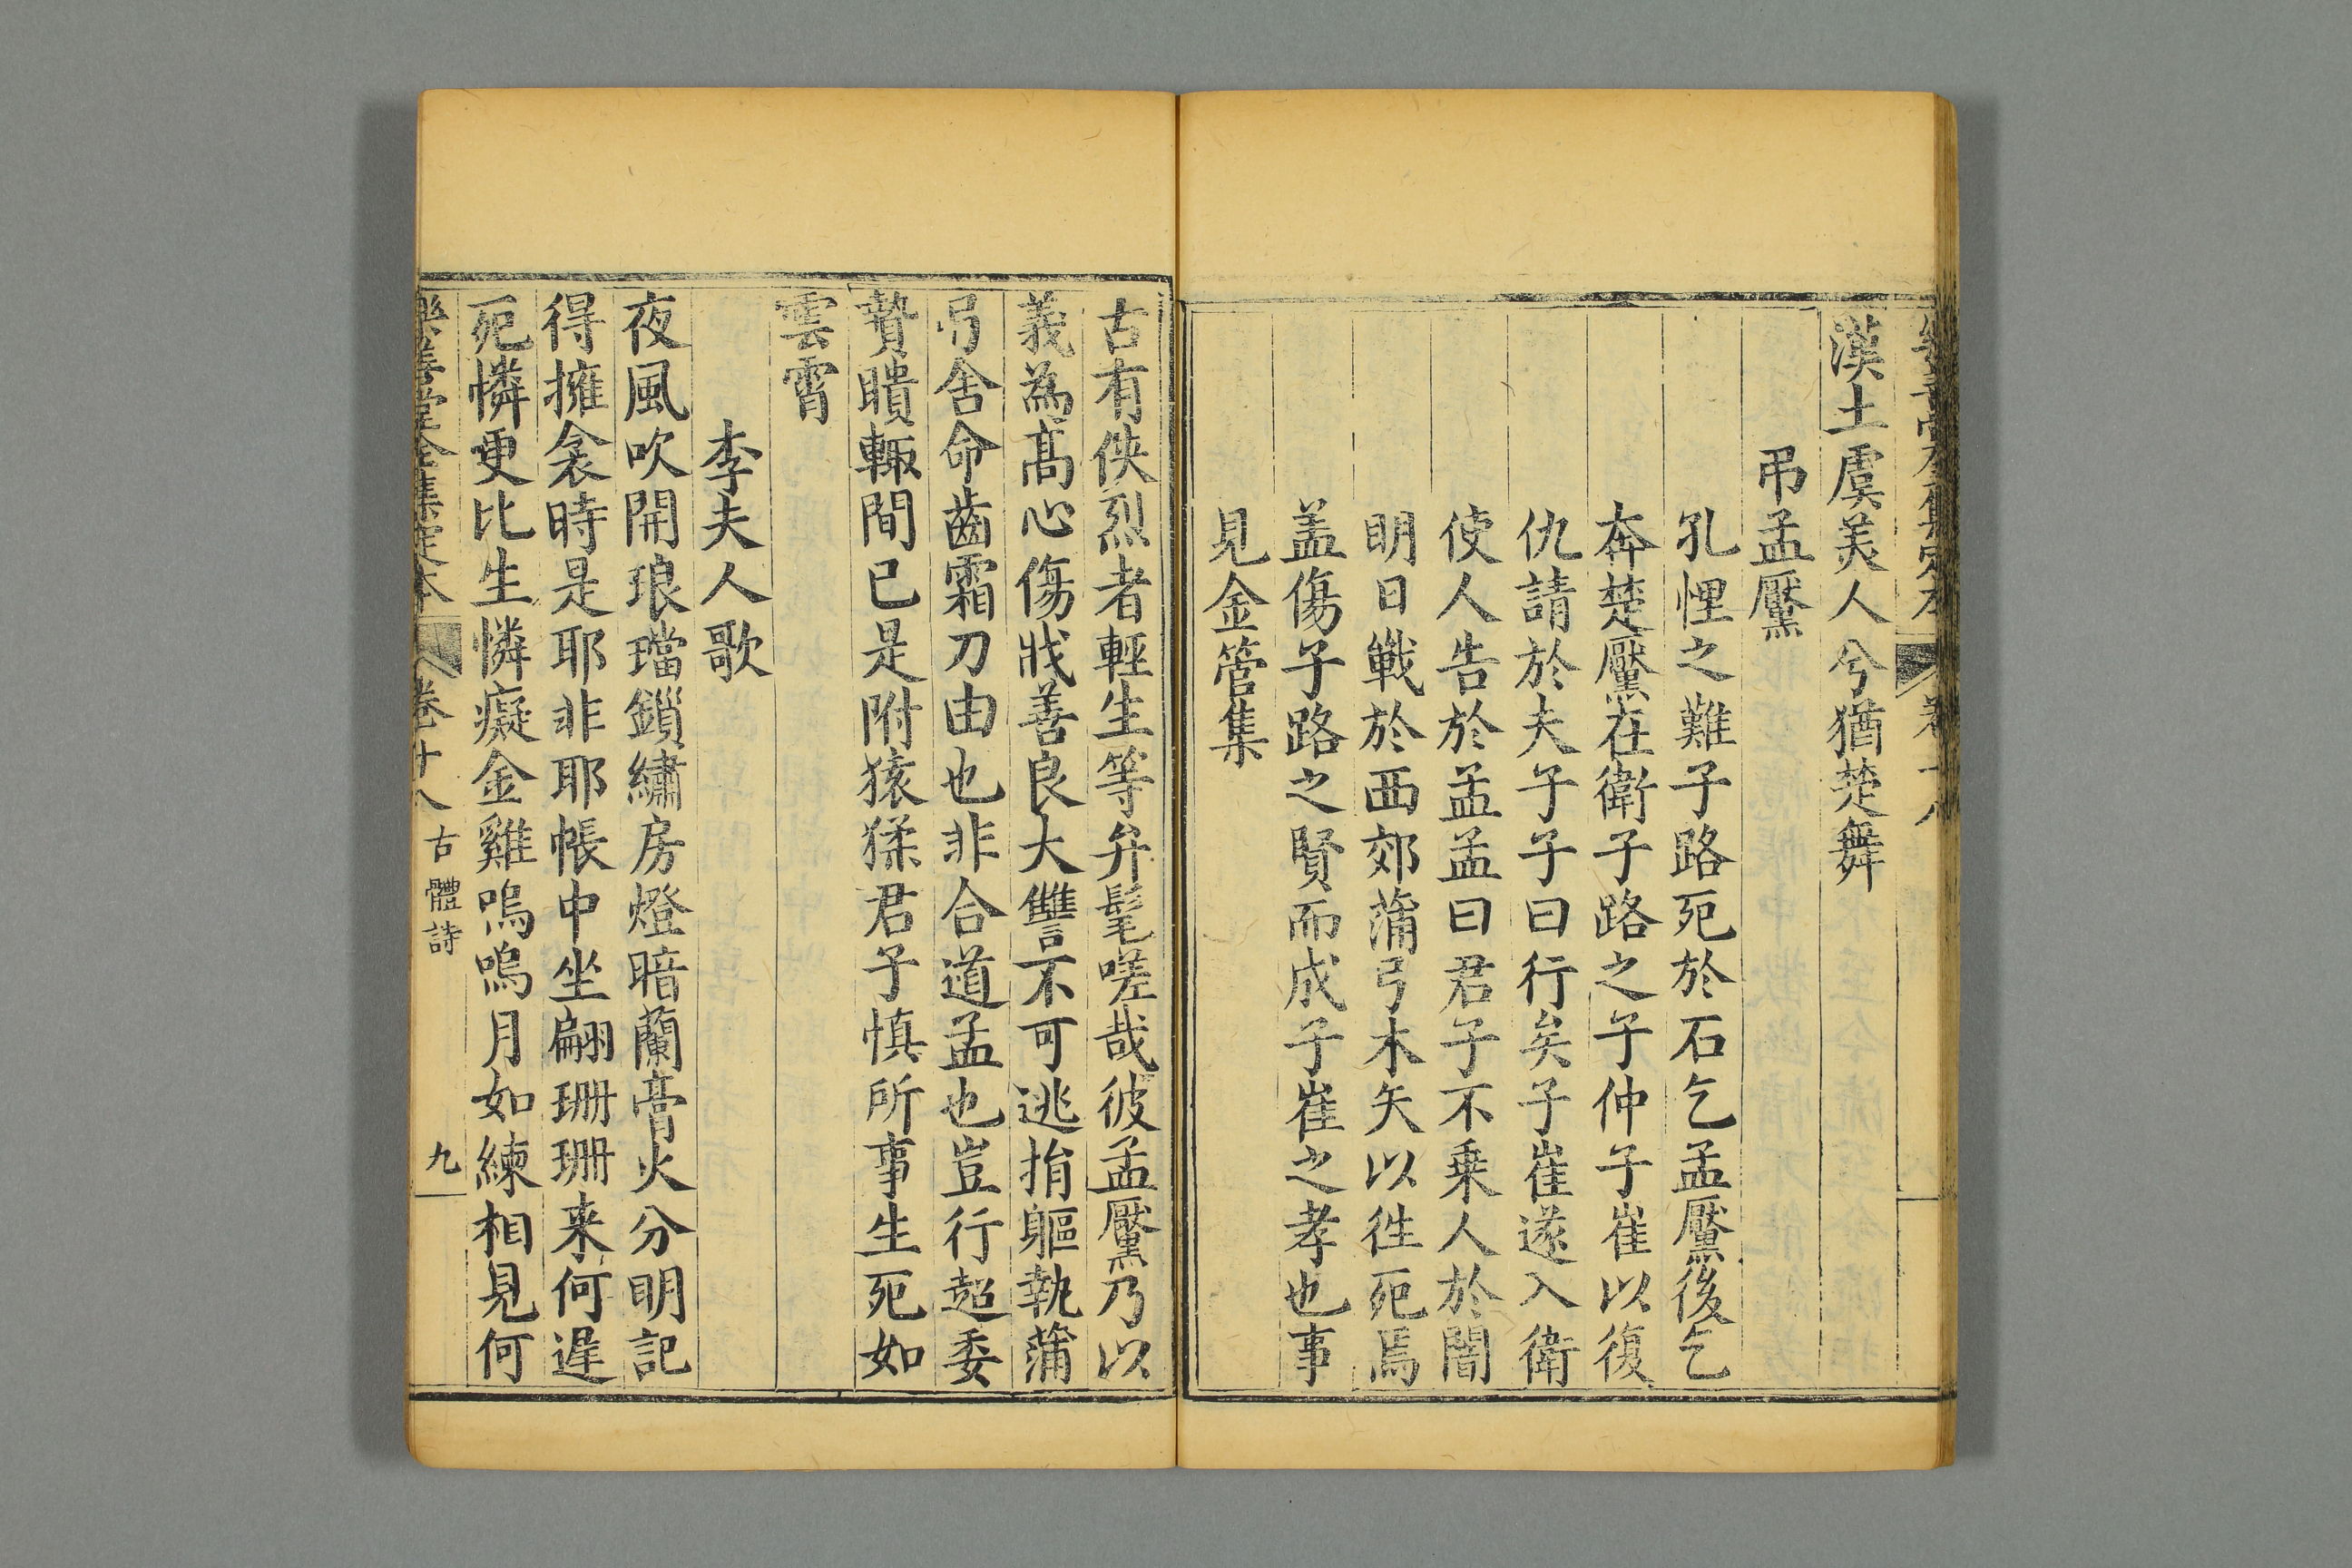 漢土虞美人兮猶楚舞
弔孟黶
孔悝之難子路死於石乞孟黶後乞
奔楚黶在衛子路之子仲子崔以復
仇請於夫子子曰行矣子崔遂入衛
使人告於孟孟曰君子不乗人於闇
明日戰於西郊蒲弓木矢以徃死焉
盖傷子路之賢而成子崔之孝也事
見金管集
古有俠烈者輕生等弁髦嗟哉彼孟黶乃以
義為髙心傷戕善良大讐不可逃捐軀執蒲
弓舍命齒霜刀由也非合道孟也豈行超委
贄瞶輙間已是附猿猱君子慎所事生死如
雲霄
李夫人歌
夜風吹開琅璫鎖繡房燈暗蘭膏火分明記
得擁衾時是耶非耶帳中坐翩珊珊来何遲
死憐更比生憐癡金雞嗚嗚月如練相見何
樂善堂全集定本 卷十八 古體詩 九